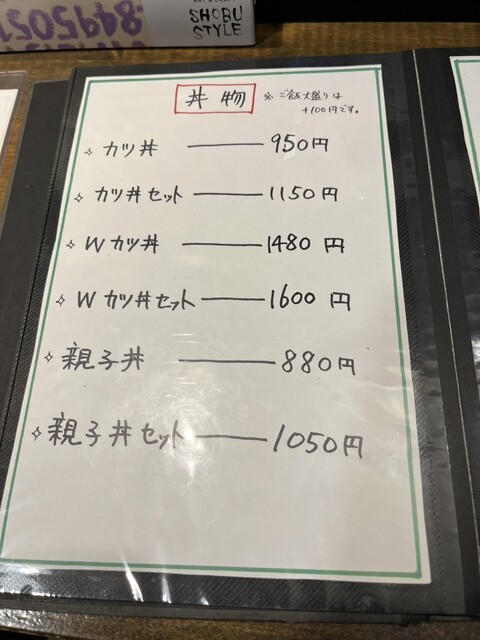 SHOBU
STYLE
丼物 ※ご飯大盛りは
+100円です。
✧ カツ丼 ―― 950円
✧ カツ丼セット ―― 1150円
✧ Wカツ丼 ―― 1480円
✧ Wカツ丼セット ―― 1600円
✧ 親子丼 ―― 880円
✧ 親子丼セット ―― 1050円